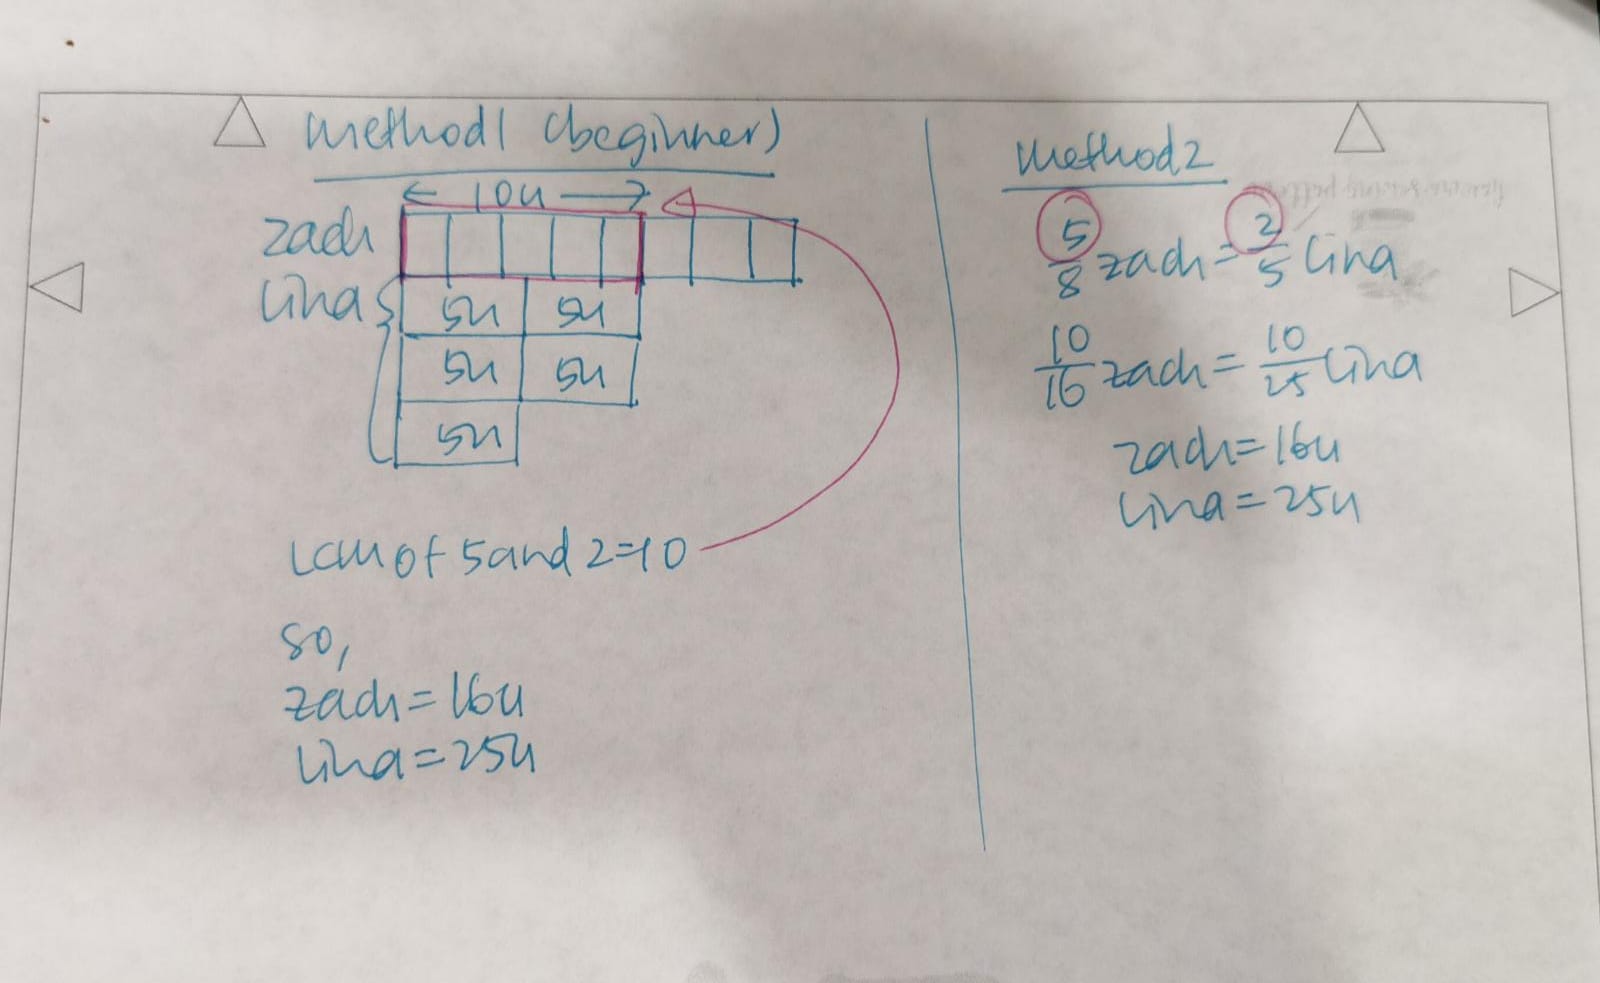 Method 1 (beginner)
← 10u →
Zach
Lina
5u 5u
5u 5u
5u
LCM of 5 and 2=10
So,
Zach=16u
Lina=25u
Method 2
5/8 Zach = 2/5 Lina
10/16 Zach = 10/25 Lina
Zach=16u
Lina=25u